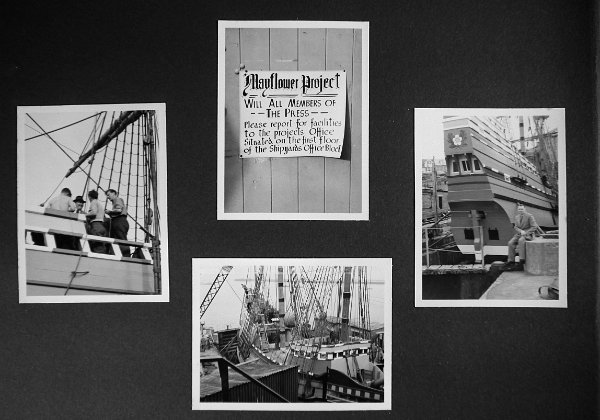 Mayflower Project
WILL ALL MEMBERS OF
— THE PRESS —
Please report for facilities
to the projects Office
Situated on the first floor
of the Shipyards Office Block